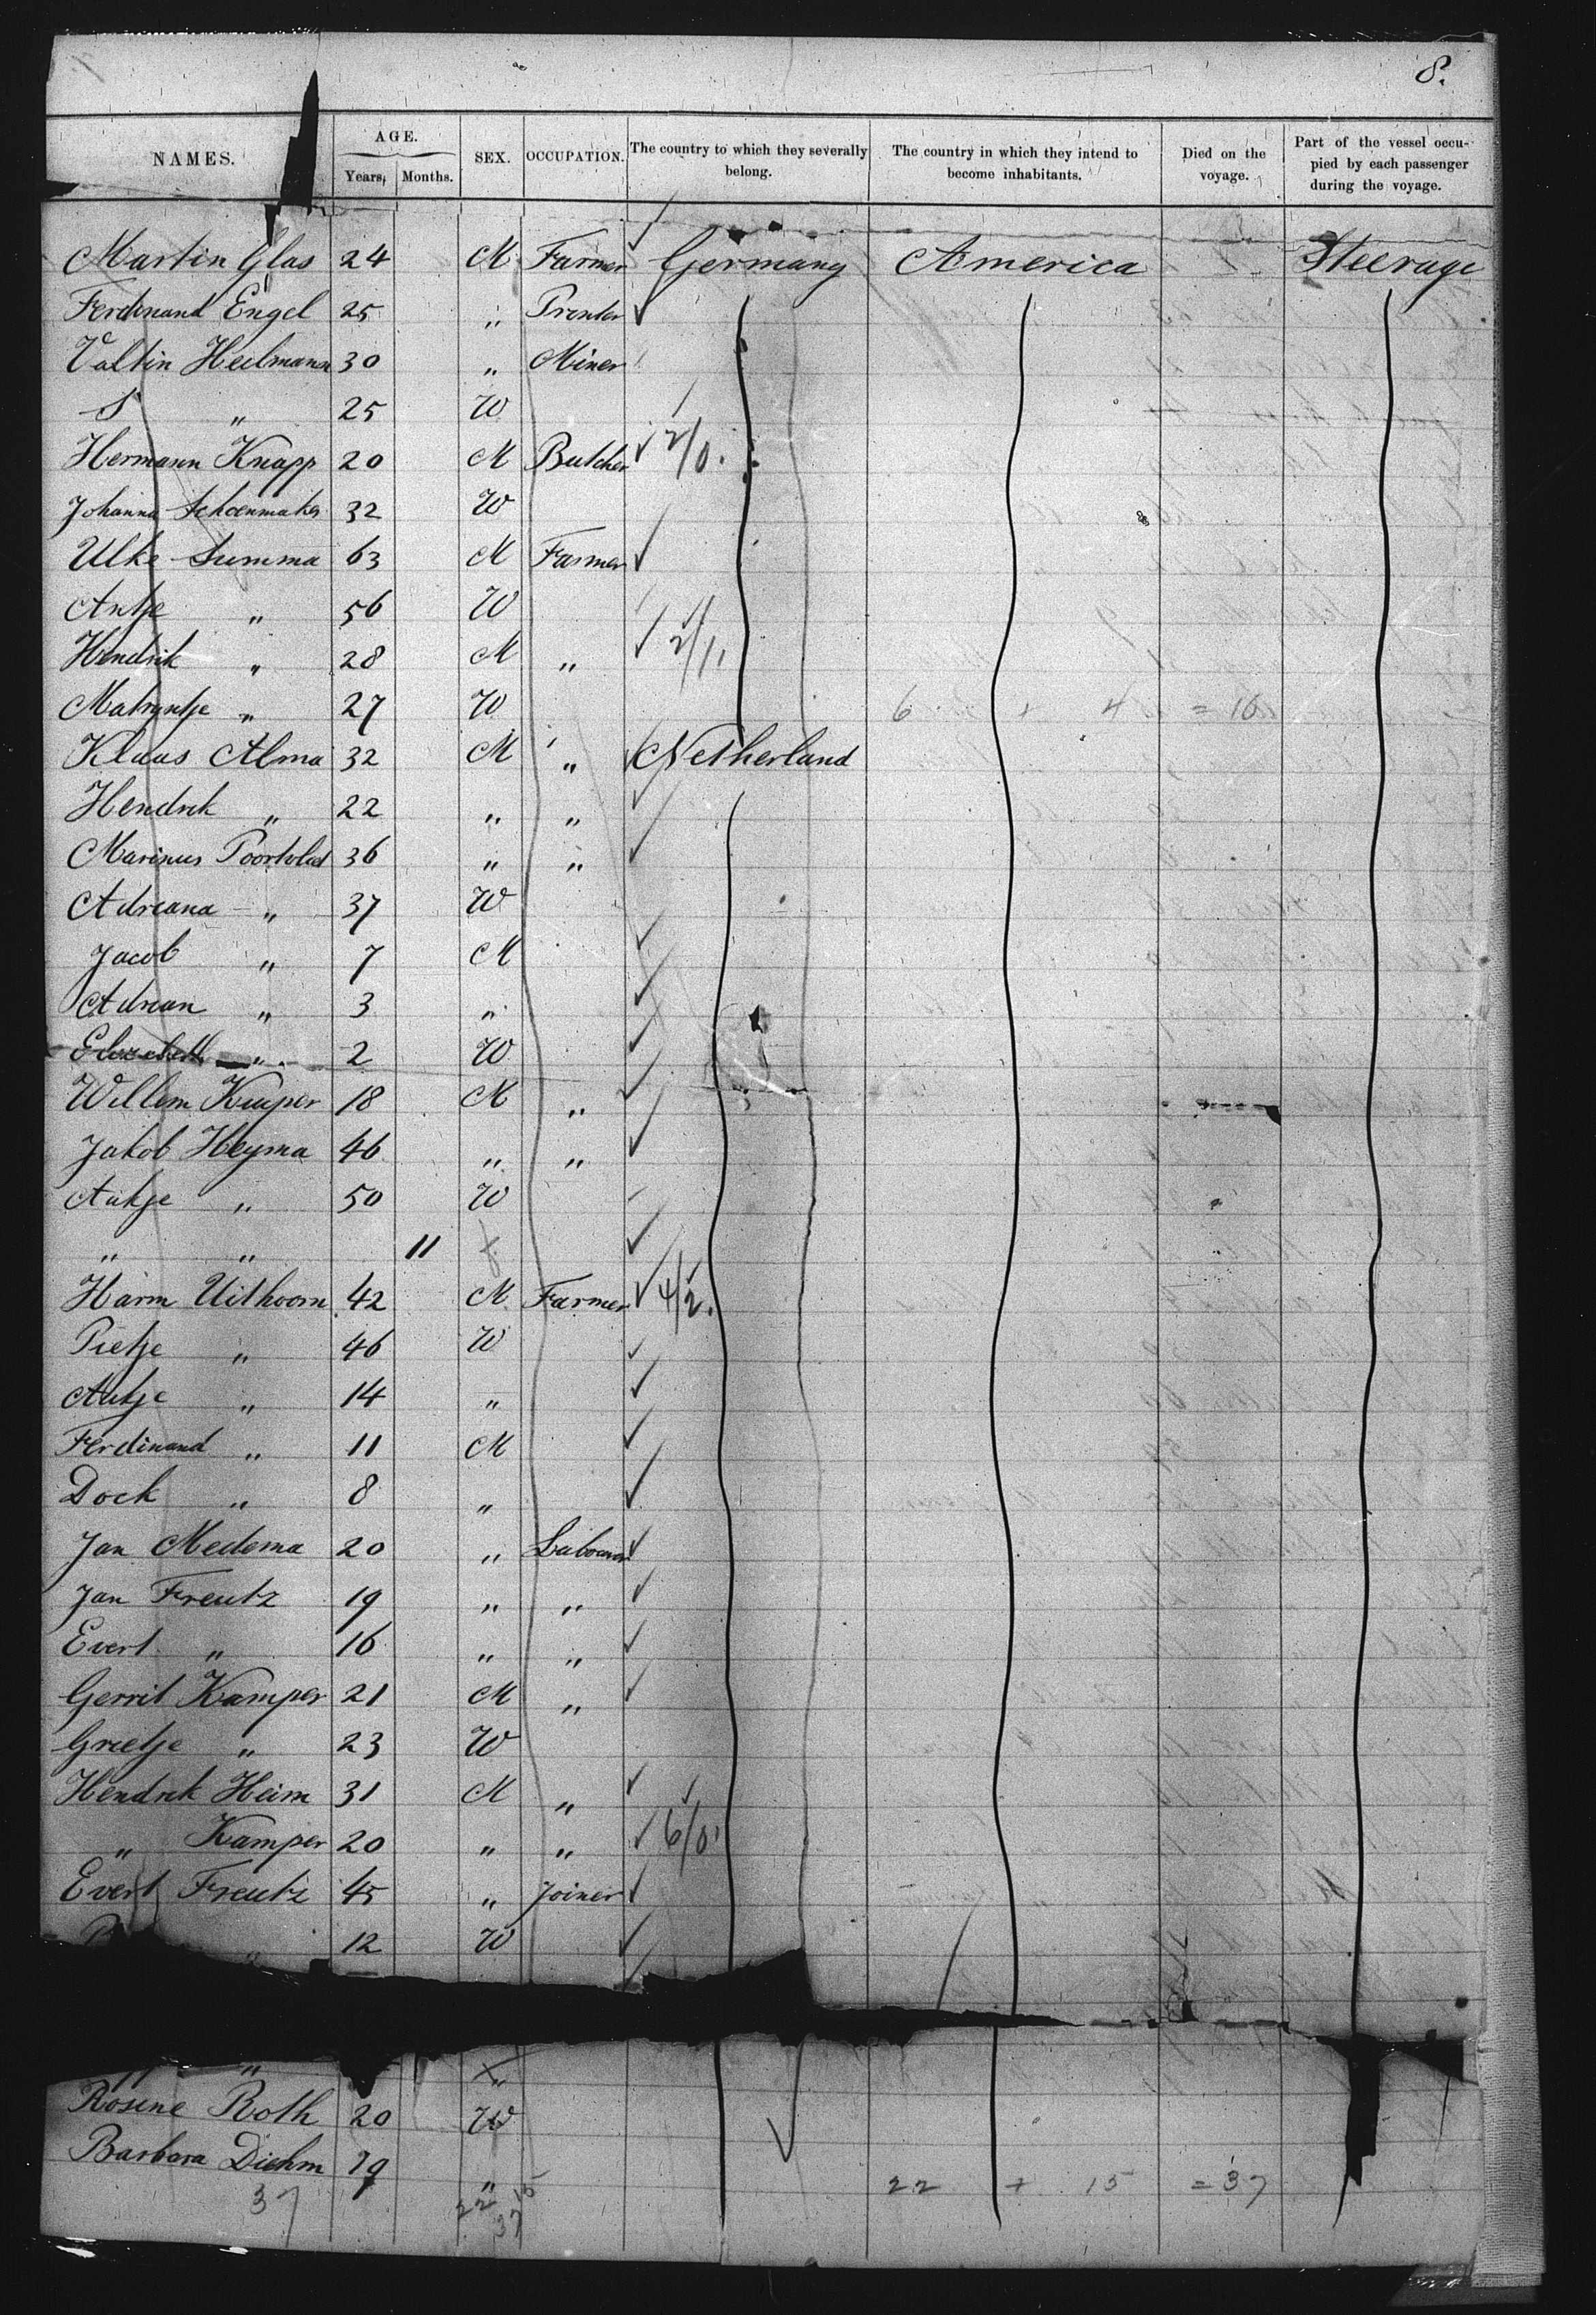 8.
NAMES. AGE. SEX. OCCUPATION. The country to which they severally belong. The country in which they intend to become inhabitants. Died on the voyage. Part of the vessel occupied by each passenger during the voyage.
Years. Months.
Martin Glas 24 M Farmer Germany America Steerage
Ferdinand Engel 25 " Printer
Valtin Heilmann 30 " Miner
S " 25 W
Hermann Knapp 20 M Butcher 2/0.
Johanna Schoenmaker 32 W
Ulke Summa 63 M Farmer
Antje " 56 W
Hendrik " 28 M " 2/1,
Matryntje " 27 W 6 + 4 = 10
Klaas Alma 32 M " Netherland
Hendrik " 22 " "
Marinus Poortvliet 36 " "
Adriana " 37 W
Jacob " 7 M
Adrian " 3 "
Elizabeth " 2 W
Willem Kuiper 18 M "
Jakob Heyma 46 " "
Aukje " 50 W
" " 11 f
Harm Uithoorn 42 M Farmer 4/2.
Pietje " 46 W
Aukje " 14 "
Ferdinand " 11 M
Dock " 8 "
Jan Medema 20 " Labourer
Jan Freutz 19 " "
Evert " 16 " "
Gerrit Kamper 21 M "
Grietje " 23 W
Hendrik Heim 31 M "
" Kamper 20 " " 6/0,
Evert Freutz 45 " Joiner
" 12 W
"
Rosine Roth 20 W
Barbara Diehm 19 "
37 22 15 37 22 + 15 = 37